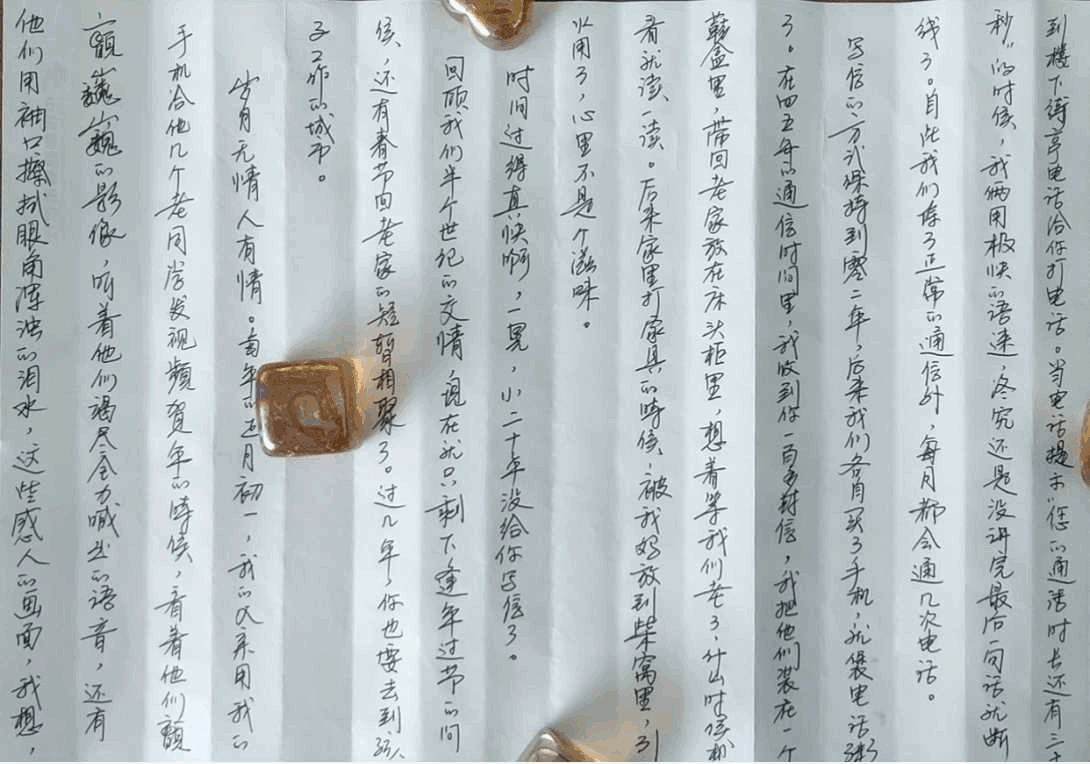 到楼下街亭电话给你打电话。当电话提示“您的通话时长还有三十
秒”的时候，我俩用极快的语速，终究还是没讲完最后一句话就断
线了。自此我们除了正常的通信外，每月都会通几次电话。
写信的方式保持到零二年，后来我们各自买了手机，就煲电话粥
了。在四五年的通信时间里，我收到你一百多封信，我把他们装在一个
鞋盒里，带回老家放在床头柜里，想着等我们老了，什么时候想
看就读一读。后来家里打家具的时候，被我妈放到柴窝里，引
火用了，心里不是个滋味。
时间过得真快啊，一晃，小二十年没给你写信了。
回顾我们半个世纪的交情，现在就只剩下逢年过节的问
候，还有春节回老家的短暂相聚了。过几年，你也要去到孩
子工作的城市。
岁月无情人有情。每年的正月初一，我的父亲用我的
手机给他几个老同学发视频贺年的时候，看着他们颤
颤巍巍的影像，听着他们竭尽全力喊出的语音，还有
他们用袖口擦拭眼角浑浊的泪水，这些感人的画面，我想，